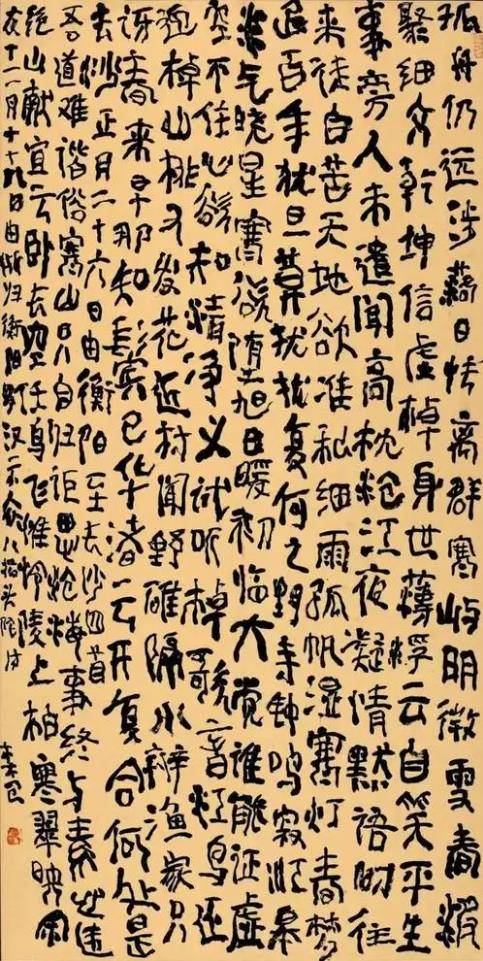 孤舟仍远涉藉日怅离群寒屿明微雪春烟
聚细文乾坤信虚棹身世薄浮云自笑平生
事旁人未遣闻高枕沧江夜凝情默语时往
来徒自苦天地欲准私细雨孤帆湿寒灯春梦
追百年犹旦暮扰扰复何之野寺钟鸣寂渐皋
气晓星寒欲堕旭日暖初临大觉谁能证虚
空不住心欲知清净义试听棹歌音江鸟还
迎棹山桃又发花近村闻野碓隔水辨渔家只
讶春来早那知岁已华千渚一云开复合何处是
长沙正月二十六日由衡阳至长沙四首
吾道难谐俗寒山只自归讵思沧海事终与素心违
绝山献宜云卧长空任鸟飞惟怜陵上柏寒翠映
十二月十九日由归衡阳八指头陀诗